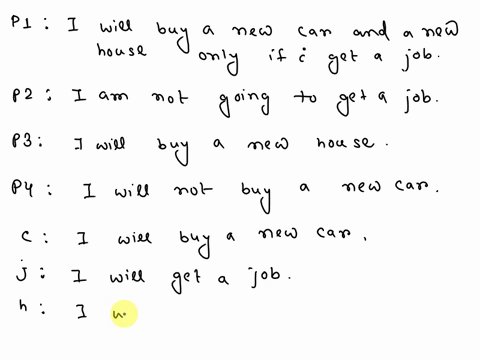 P1: I will buy a new car and a new
house only if i get a job.
P2: I am not going to get a job.
P3: I will buy a new house.
P4: I will not buy a new car.
c: I will buy a new car.
j: I will get a job.
h: I w